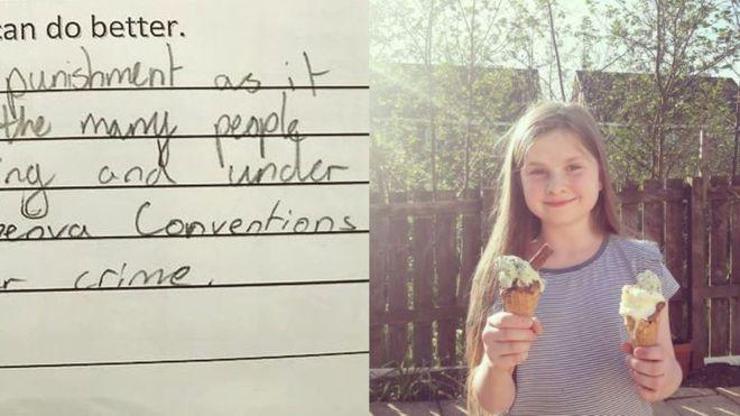 can do better.
punishment as it
the many people
ing and under
eneva Conventions
r crime.